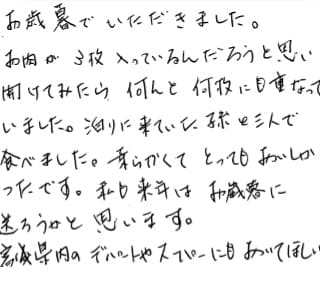 お歳暮でいただきました。
お肉が3枚入っているんだろうと思い
開けてみたら、何んと何枚にも重なって
いました。泊りに来ていた孫と三人で
食べました。柔らかくてとってもおいしか
ったです。私も来年はお歳暮に
送ろうかと思います。
宮城県内のデパートやスーパーにもおいてほしい